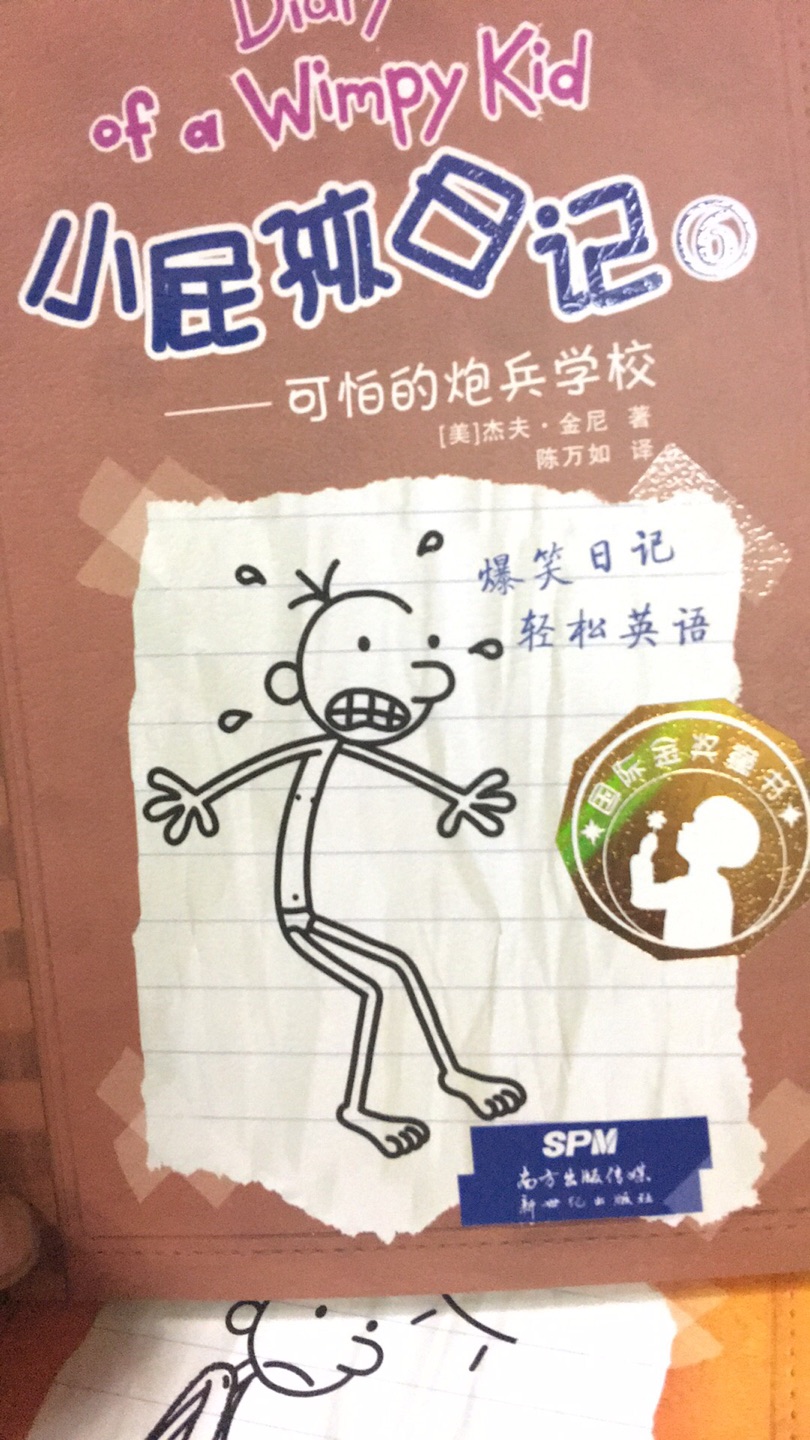 Diary
of a Wimpy Kid
小屁孩日记⑥
——可怕的炮兵学校
[美]杰夫·金尼 著
陈万如 译
爆笑日记
轻松英语
国际金奖童书
SPM
南方出版传媒
新世纪出版社